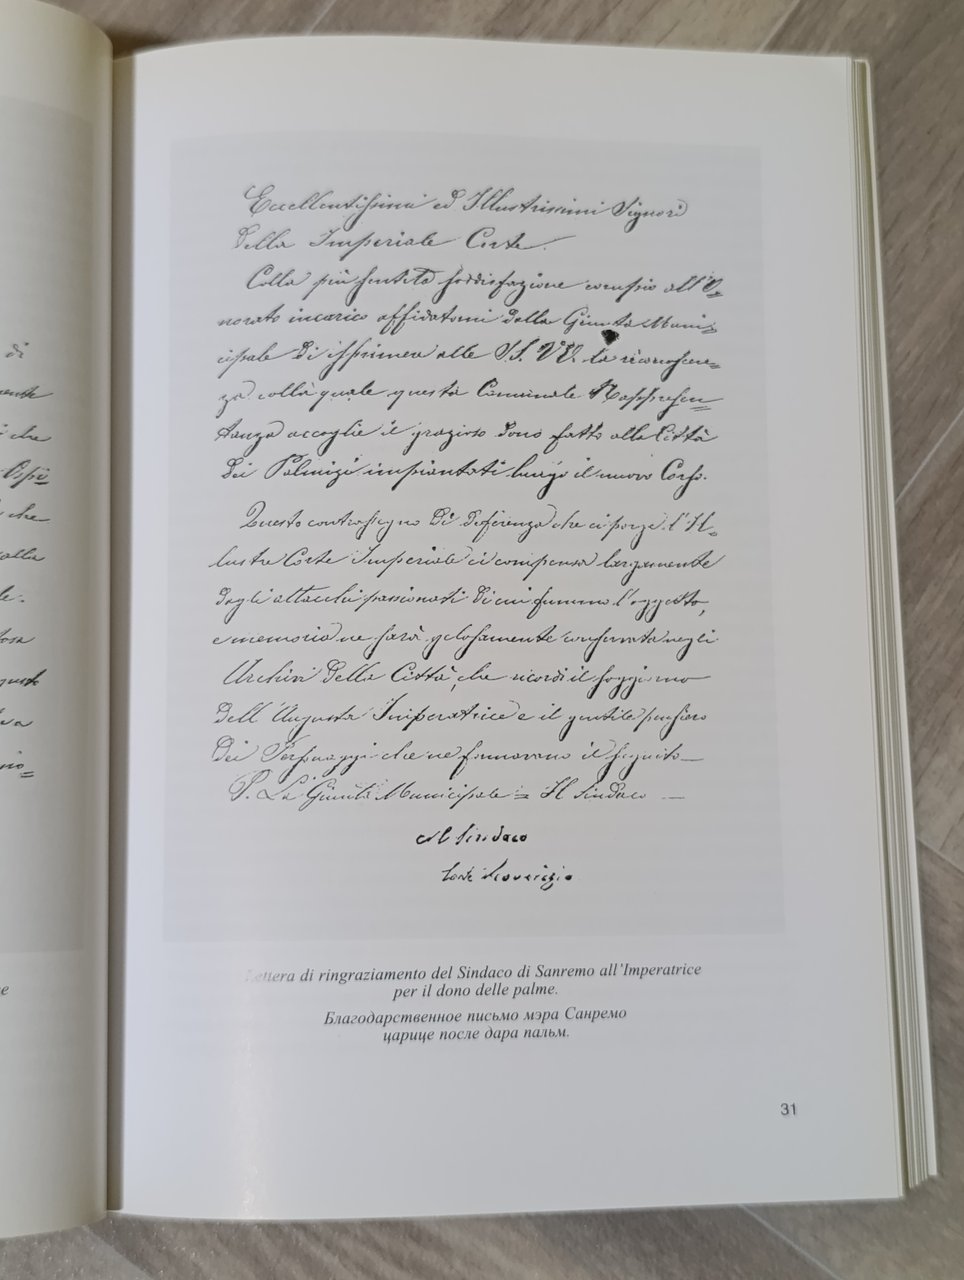 di
che
che
alla
Eccellentissimi ed Illustrissimi Signori
della Imperiale Corte.
Colla più sentita soddisfazione compio all'O=
norato incarico affidatomi dalla Giunta Muni=
cipale di esprimere alle S.S. V.V. la riconoscen=
za colla quale questa Comunale Rappresen=
tanza accoglie il grazioso dono fatto alla Città
dei Palmizi impiantati lungo il nuovo Corso.
Questo contrassegno di deferenza che ci porge l'Il=
lustre Corte Imperiale ci compensa largamente
degli attacchi passionati di cui fummo l'oggetto,
e memoria ne sarà gelosamente conservata negli
Archivi della Città, che ricordi il soggiorno
dell'Augusta Imperatrice e il gentile pensiero
dei Personaggi che ne formavano il seguito —
P. La Giunta Municipale = Il Sindaco —
Il Sindaco
Lettera di ringraziamento del Sindaco di Sanremo all'Imperatrice
per il dono delle palme.
Благодарственное письмо мэра Санремо
царице после дара пальм.
31